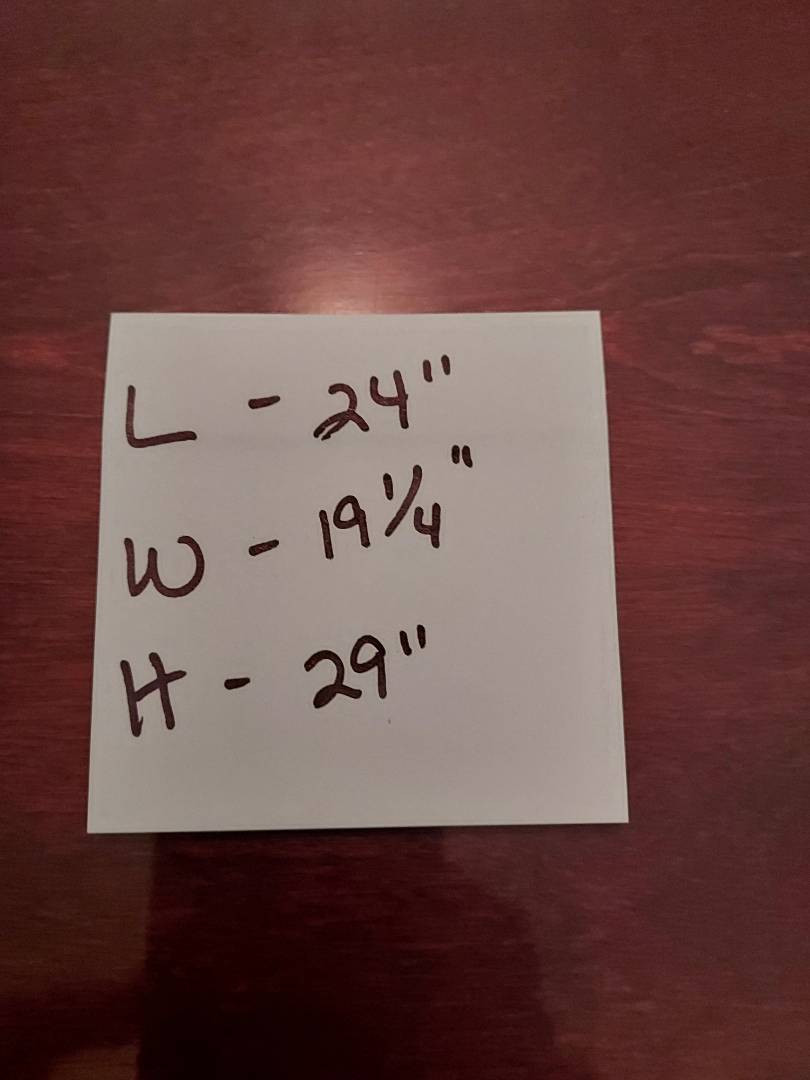 L - 24"
W - 19 1/4"
H - 29"